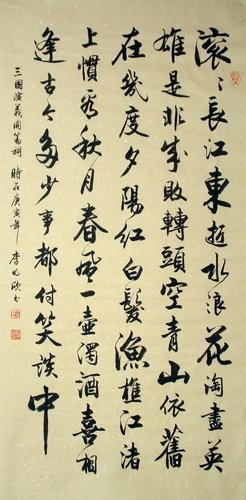 滚々長江東逝水浪花淘盡英
雄是非成敗轉頭空青山依舊
在幾度夕陽紅白髮漁樵江渚
上慣看秋月春風一壺濁酒喜相
逢古今多少事都付笑談中
三國演義開篇詞 時在庚寅年 李